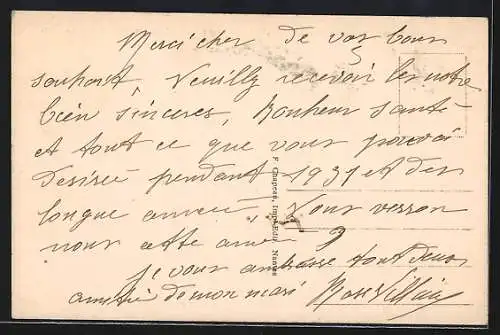 Merci cher de vos bons
souhait, Veuilly recevoir les notre
bien sinceres, Bonheur santé
et tout ce que vous pouvai
desirée pendant 1931 et des
longue année. Nous verron
nous cette anée ?
je vous embrasse tout deux
amitié de mon mari Rose
F. Chapeau, Imp.-Édit. Nantes